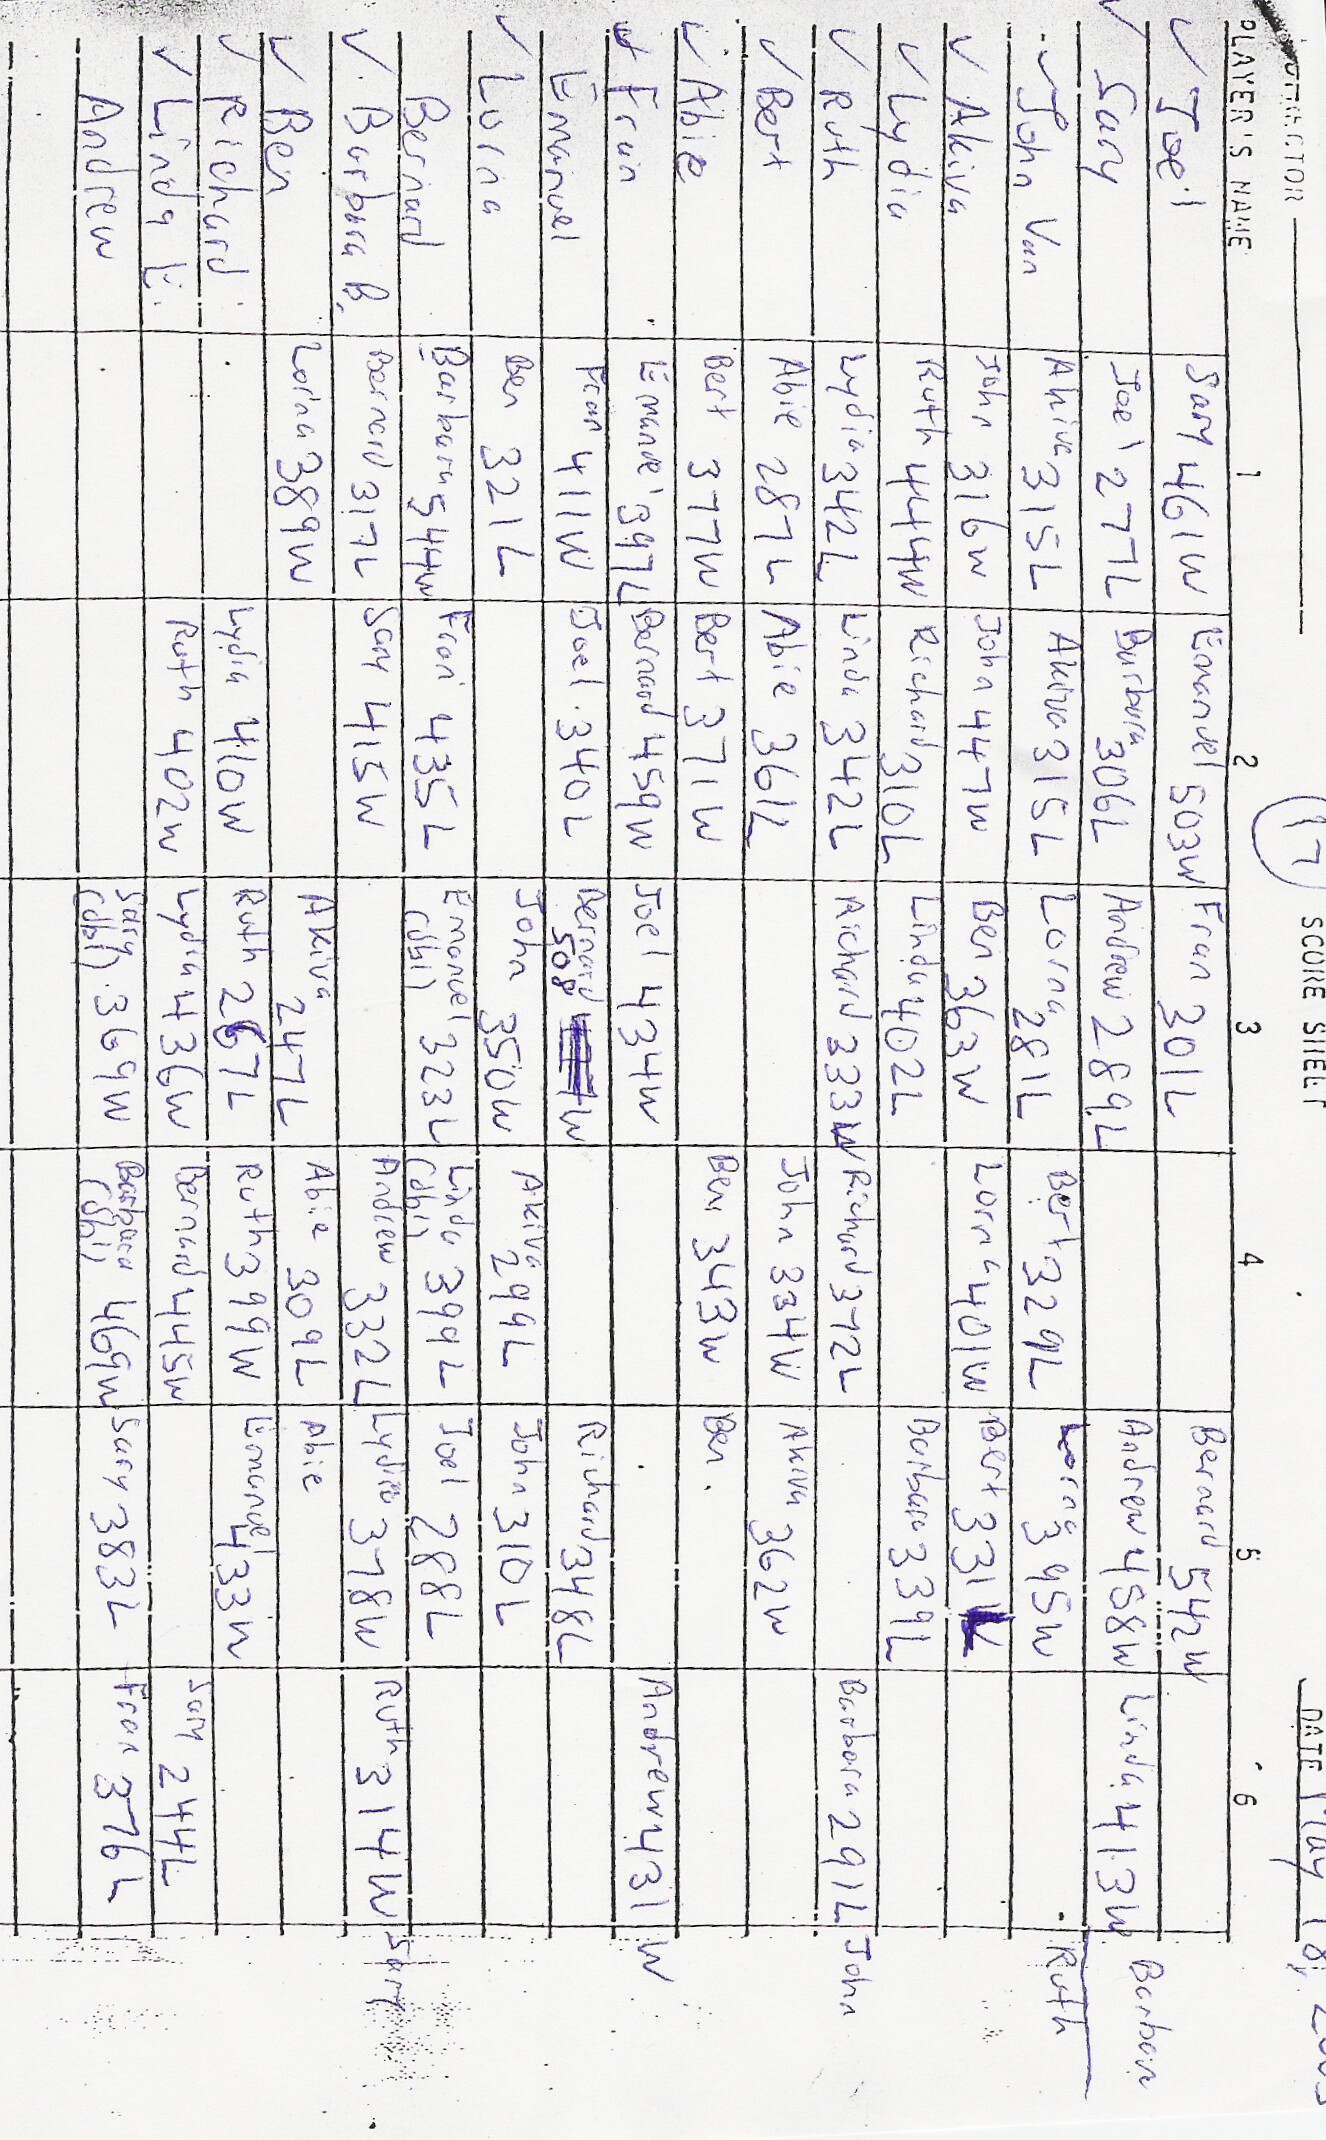 SCORE SHEET
17
DATE May 18, 2003
PLAYER'S NAME 1 2 3 4 5 6
✓ Joel Sary 461W Emanuel 503W Fran 301L Bernard 542W
✓ Sary Joel 277L Barbara 306L Andrew 289L Andrew 458W Linda 413W Barbara
✓ John Van Akiva 315L Akiva 315L Lorna 281L Bert 329L Lorna 395W Ruth
✓ Akiva John 316W John 447W Ben 363W Lorna 401W Bert 331L
✓ Lydia Ruth 444W Richard 310L Linda 402L Barbara 339L
✓ Ruth Lydia 342L Linda 342L Richard 333W Richard 372L Barbara 291L John
✓ Bert Abie 287L Abie 361L John 334W Akiva 362W
✓ Abie Bert 377W Bert 371W Ben 343W Ben
✓ Fran Emanuel 397L Bernard 459W Joel 434W Andrew 431W
Emanuel Fran 411W Joel 340L Bernard 508 W Richard 348L
✓ Lorna Ben 321L John 350W Akiva 299L John 310L
Bernard Barbara 544W Fran 435L Emanuel (dbl) 323L Linda (dbl) 399L Joel 288L
✓ Barbara B. Bernard 317L Sary 415W Andrew 332L Lydia 378W Ruth 314W Sary
✓ Ben Lorna 389W Akiva 247L Abie 309L Abie
✓ Richard Lydia 410W Ruth 267L Ruth 399W Emanuel 433W
✓ Linda L. Ruth 402W Lydia 436W Bernard 445W Sary 244L
Andrew Sary (dbl) 369W Barbara (dbl) 469W Sary 383L Fran 376L